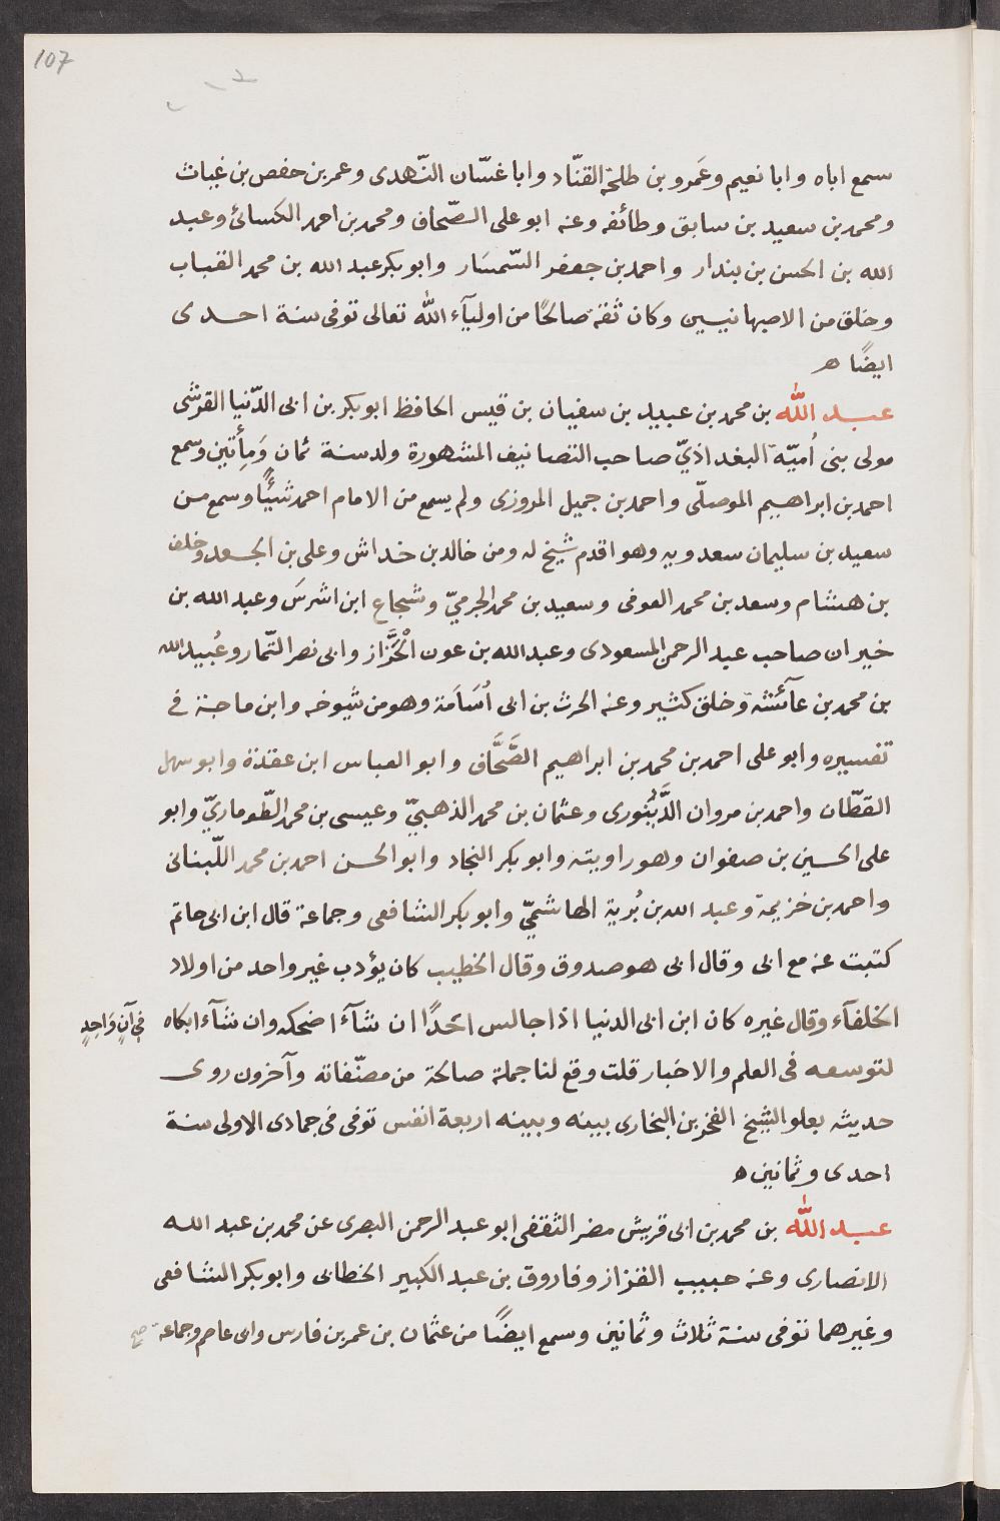 107
سمع اباه وابا نعيم وعَمرو بن طلحة القنّاد وابا غسّان النّهدى وعمر بن حفص بن غياث
ومحمد بن سعيد بن سابق وطائفه وعنه ابو على الصّحاف ومحمد بن احمد الكسائى وعبد
الله بن الحسن بن بندار واحمد بن جعفر السّمسَار وابو بكر عبد الله بن محمد القباب
وخلق من الاصبهانيين وكان ثقة صالحًا من اوليآء الله تعالى توفى سنة احدى
ايضًا ه
عبد الله بن محمد بن عبيد بن سفيان بن قيس الحافظ ابو بكر بن ابى الدّنيا القرشى
مولى بنى اُميّة البغداذيّ صاحب التصانيف المشهورة ولد سنة ثمان وَمِأتين وسمع
احمد بن ابراهيم الموصلّى واحمد بن جميل المروزى ولم يسمع من الامام احمد شيئًا وسمع من
سعيد بن سليمان سعدويه وهو اقدم شيخ له ومن خالد بن خداش وعلى بن الجعد وخلف
بن هشام وسعد بن محمد العوفى وسعيد بن محمد الجرميّ وشجاع ابن اشرسَ وعبد الله بن
خيران صاحب عبد الرحمن المسعودى وعبد الله بن عون الْخَرَّاز وابى نصر التّمار وعُبيد الله
بن محمد بن عآئشة وخلق كثير وعنه الحرث بن ابى اُسَامَة وهو من شيوخه وابن ماجة فى
تفسيره وابو على احمد بن محمد بن ابراهيم الصَّحَّاف وابو العباس ابن عقدة وابو سهل
القطّان واحمد بن مروان الدَّيْنورى وعثمان بن محمد الذهبيّ وعيسى بن محمد الطّوماريّ وابو
على الحسين بن صفوان وهو راويته وابو بكر النجاد وابو الحسن احمد بن محمد اللّبنانى
واحمد بن خزيمة وعبد الله بن بُرية الهاشميّ وابو بكر الشافعى وجماعة قال ابن ابى حاتم
كتبت عنه مع ابى وقال ابى هو صدوق وقال الخطيب كان يؤدب غير واحد من اولاد
الخلفآء وقال غيره كان ابن ابى الدنيا اذا جالس احدًا ان شآء اضحكه وان شآء ابكاه فى آنٍ وَاحِدٍ
لتوسعه فى العلم والاخبار قلت وقع لنا جملة صالحة من مصنّفاته وآخرون روى
حديثه بعلو الشيخ الفخر بن البخارى بينه وبينه اربعة انفس توفى فى جمادى الاولى سنة
احدى وثمانين ه
عبد الله بن محمد بن ابى قريش مضر الثقفى ابو عبد الرحمن البصرى عن محمد بن عبد الله
الانصارى وعنه حبيب القزاز وفاروق بن عبد الكبير الخطابى وابو بكر الشافعى
وغيرهما توفى سنة ثلاث وثمانين وسمع ايضًا من عثمان بن عمر بن فارس وابى عاصم وجماعة صح